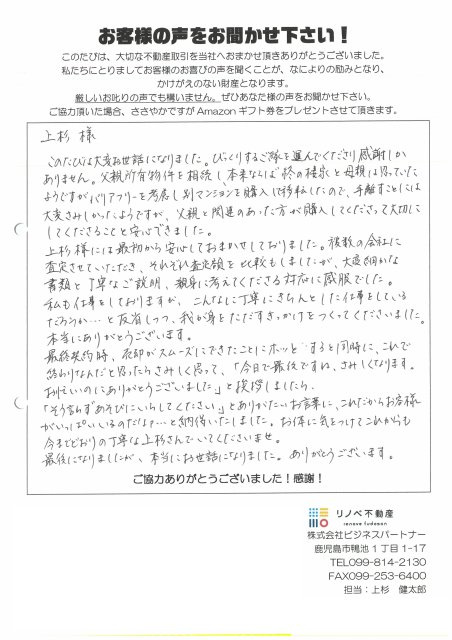 お客様の声をお聞かせ下さい！
このたびは、大切な不動産取引を当社へおまかせ頂きありがとうございました。
私たちにとりましてお客様のお喜びの声を聞くことが、なによりの励みとなり、
かけがえのない財産となります。
厳しいお叱りの声でも構いません。ぜひあなた様の声をお聞かせ下さい。
ご協力頂いた場合、ささやかですがAmazonギフト券をプレゼントさせて頂きます。
上杉 様
このたびは大変お世話になりました。びっくりするご縁を運んでくださり感謝しか
ありません。父親所有物件を相続し本来ならば終の棲家と母親は思っていた
ようですがバリアフリーを考慮し別マンションを購入し移転したので、手離すことには
大変さみしかったようですが、父親と関連のあった方が購入してくださって大切に
してくださることと安心できました。
上杉様には最初から安心しておまかせしておりました。複数の会社に
査定させていただき、それぞれ査定額を比較もしましたが、大変細かな
書類と丁寧なご説明、親身に考えてくださる対応に感服でした。
私も仕事をしておりますが、こんなに丁寧にきちんとした仕事をしている
だろうか…と反省しつつ、我が身をただすきっかけをつくってくださいました。
本当にありがとうございます。
最終契約時、売却がスムーズにできたことにホッとすると同時に、これで
終わりなんだと思ったらさみしく思って、「今日で最後ですね、さみしくなります。
ありがとうございました」と挨拶しましたら、
「そう言わずあそびにいらしてください」とありがたいお言葉に、これだからお客様
がいっぱいいるのだなァ…と納得いたしました。お体に気をつけてこれからも
今までどおりの丁寧な上杉さんでいてくださいませ。
最後になりましたが、本当にお世話になりました。ありがとうございます。
ご協力ありがとうございました！感謝！
リノベ不動産
renove fudosan
株式会社ビジネスパートナー
鹿児島市鴨池１丁目1-17
TEL099-814-2130
FAX099-253-6400
担当：上杉　健太郎